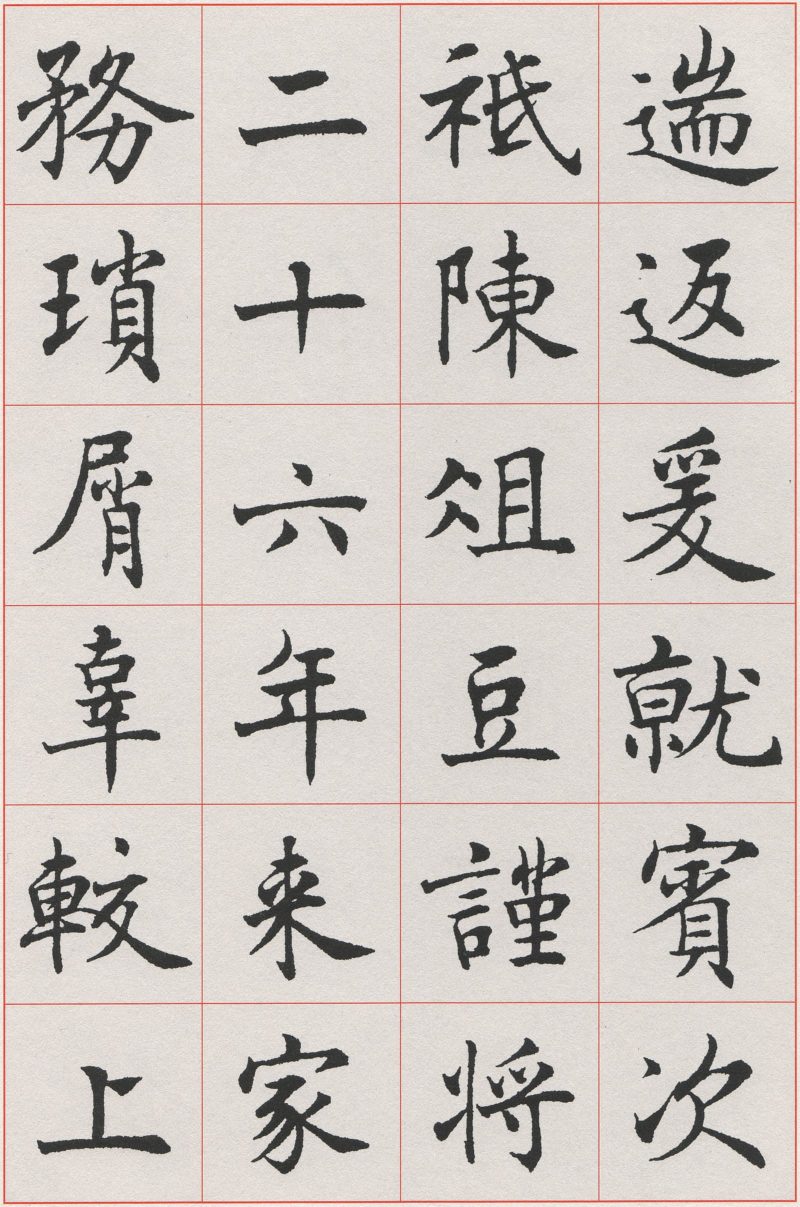 遄返爰就賓次
祗陳俎豆謹将
二十六年来家
務瑣屑辜較上